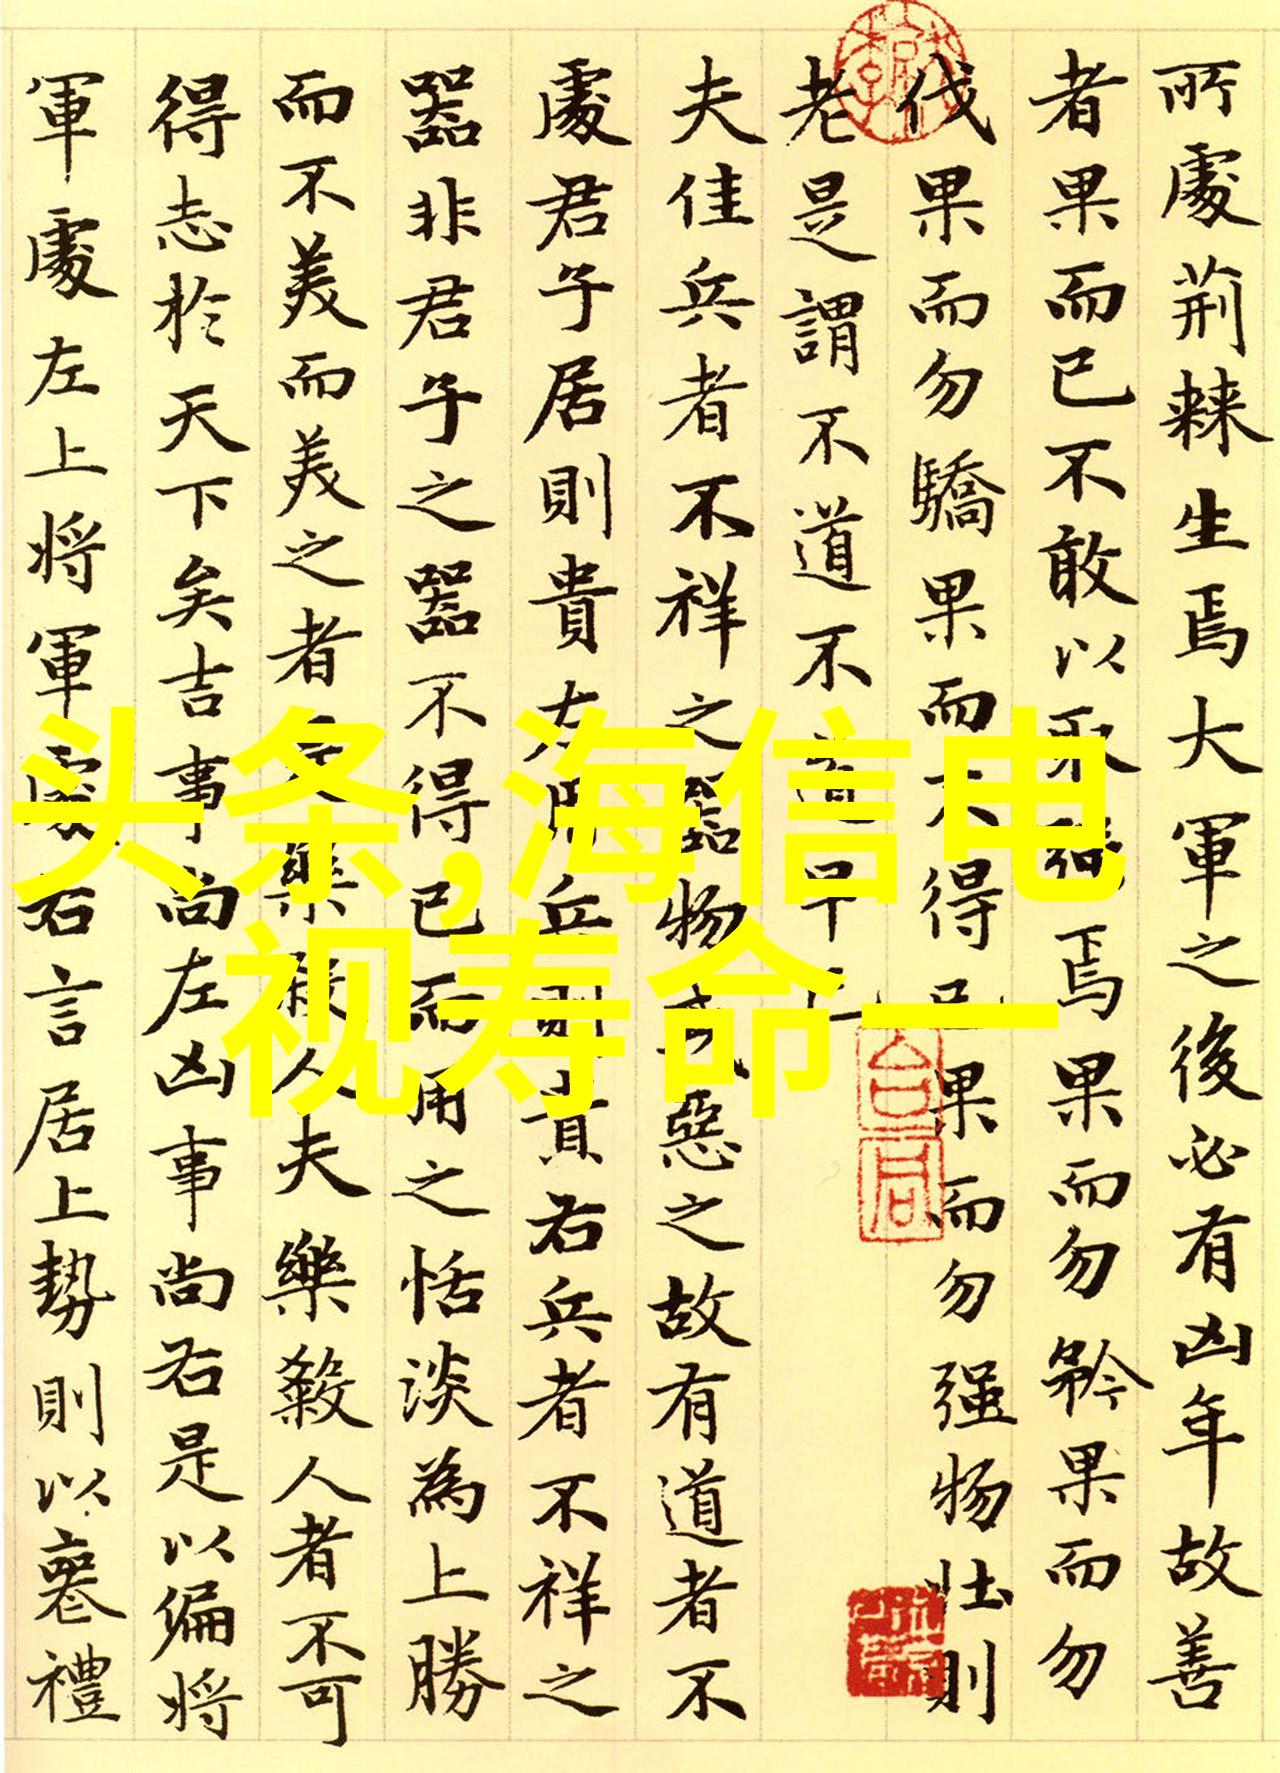 所處荊棘生焉大軍之後必有凶年故善
者果而已不敢以取強焉果而勿矜果而勿
伐果而勿驕果而不得已果而勿强物壯則
老是謂不道不道早已
夫佳兵者不祥之器物或惡之故有道者不
處君子居則貴左用兵則貴右兵者不祥之
器非君子之器不得已而用之恬淡為上勝
而不美而美之者是樂殺人夫樂殺人者不可
得志於天下矣吉事尚左凶事尚右是以偏將
軍處左上將軍處右言居上勢則以喪禮
头条,海信电
视寿命一